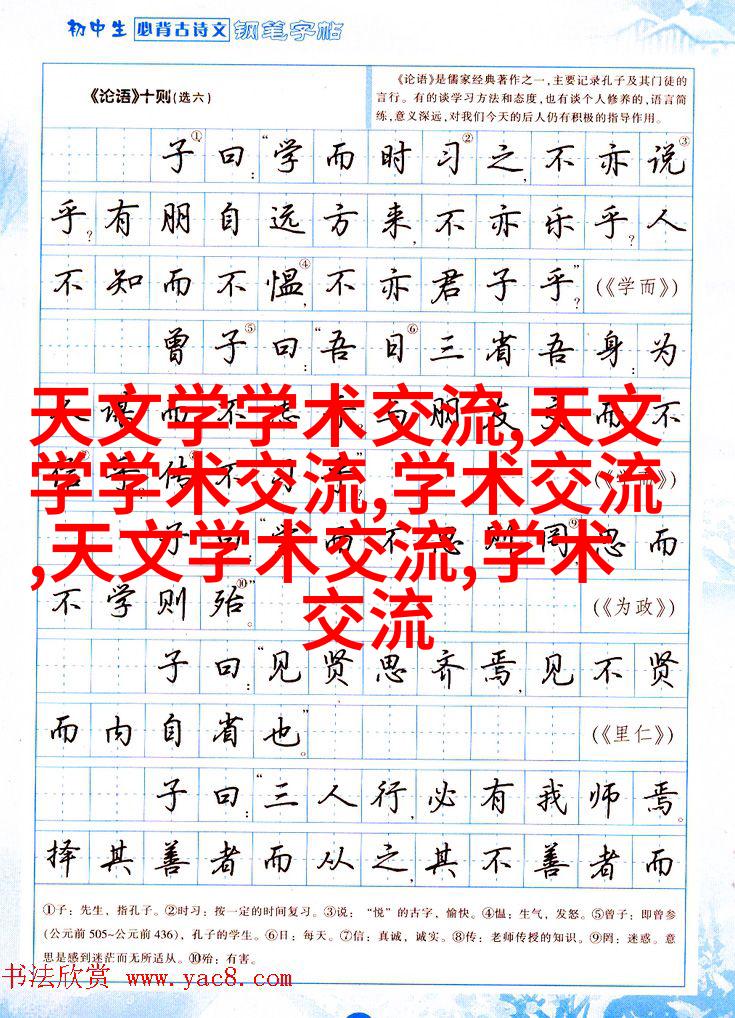 初中生 必背古诗文 钢笔字帖
《论语》十则(选六)
《论语》是儒家经典著作之一,主要记录孔子及其门徒的
言行。有的谈学习方法和态度,也有谈个人修养的,语言简
练,意义深远,对我们今天的后人仍有积极的指导作用。
子①曰:“学而时习②之,不亦说③
乎?有朋自远方来,不亦乐乎?人
不知而不愠④,不亦君子乎”?(《学而》)
曾子⑤曰:“吾日⑥三省吾身:为
谋而不 与朋友交而不
传不习
天文学学术交流,天文
学学术交流,学术交流
,天文学术交流,学术
交流
子曰:“学而不思则罔⑨,思而
不学则殆⑩。”(《为政》)
子曰:“见贤思齐焉,见不贤
而内自省也。”(《里仁》)
子曰:“三人行,必有我师焉。
择其善者而从之,其不善者而
①子:先生,指孔子。②时习:按一定的时间复习。③说:“悦”的古字,愉快。④愠:生气,发怒。⑤曾子:即曾参
(公元前505~公元前436),孔子的学生。⑥日:每天。⑦信:真诚,诚实。⑧传:老师传授的知识。⑨罔:迷惑。意
思是感到迷茫而无所适从。⑩殆:有害。
书法欣赏 www.yac8.com